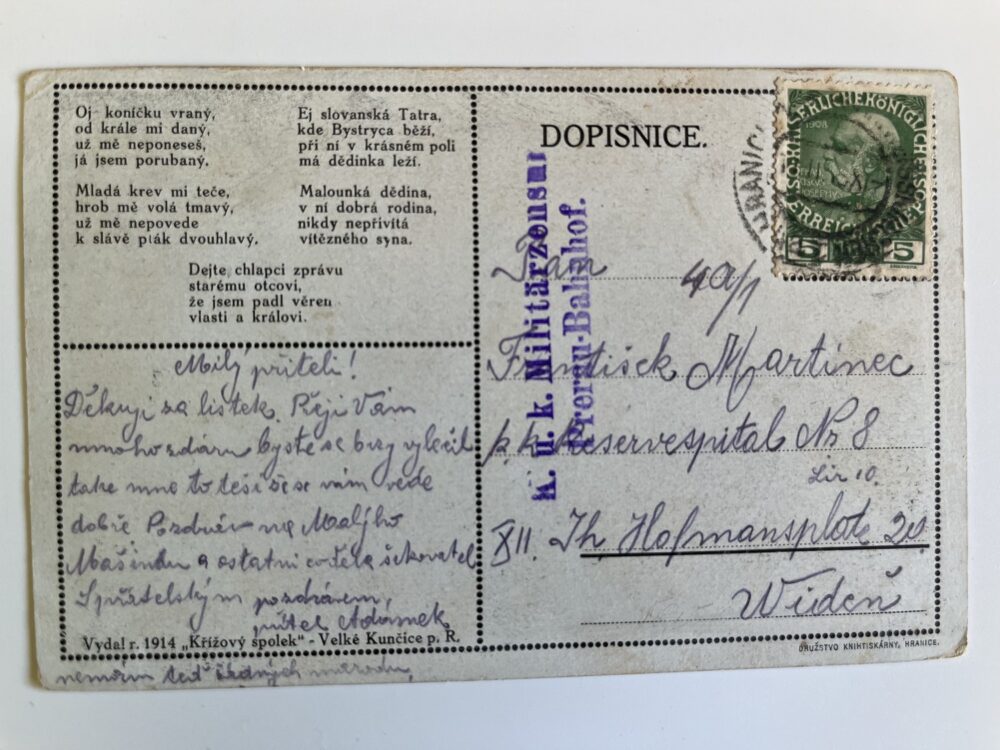 Oj koníčku vraný,
od krále mi daný,
už mě neponeseš,
já jsem porubaný.
Mladá krev mi teče,
hrob mě volá tmavý,
už mě nepovede
k slávě pták dvouhlavý.
Ej slovanská Tatra,
kde Bystryca běží,
při ní v krásném poli
má dědinka leží.
Malounká dědina,
v ní dobrá rodina,
nikdy nepřivítá
vítězného syna.
Dejte chlapci zprávu
starému otcovi,
že jsem padl věren
vlasti a královi.
Milý příteli!
Děkuji za lístek. Přeji Vám
mnoho zdaru byste se brzy vyléčil
také mno to těší že se vám vede
dobře Pozdrav na Malýho
Mašinku a ostatní šikovatel
S přátelským pozdravem
přítel Adámek
Vydal r. 1914 „Křížový spolek" - Velké Kunčice p. R.
nemám teď žádných
DOPISNICE.
K. u. k. Militärzensur
Prerau-Bahnhof.
KAISERLICHEKÖNIGLICHE
ÖSTERREICH
5 5
Pan
František Martinec
k.k. Reservespital Nr 8
XIII. Hofmansplatz
Wídeň
DRUŽSTVO KNIHTISKÁRNY, HRANICE.